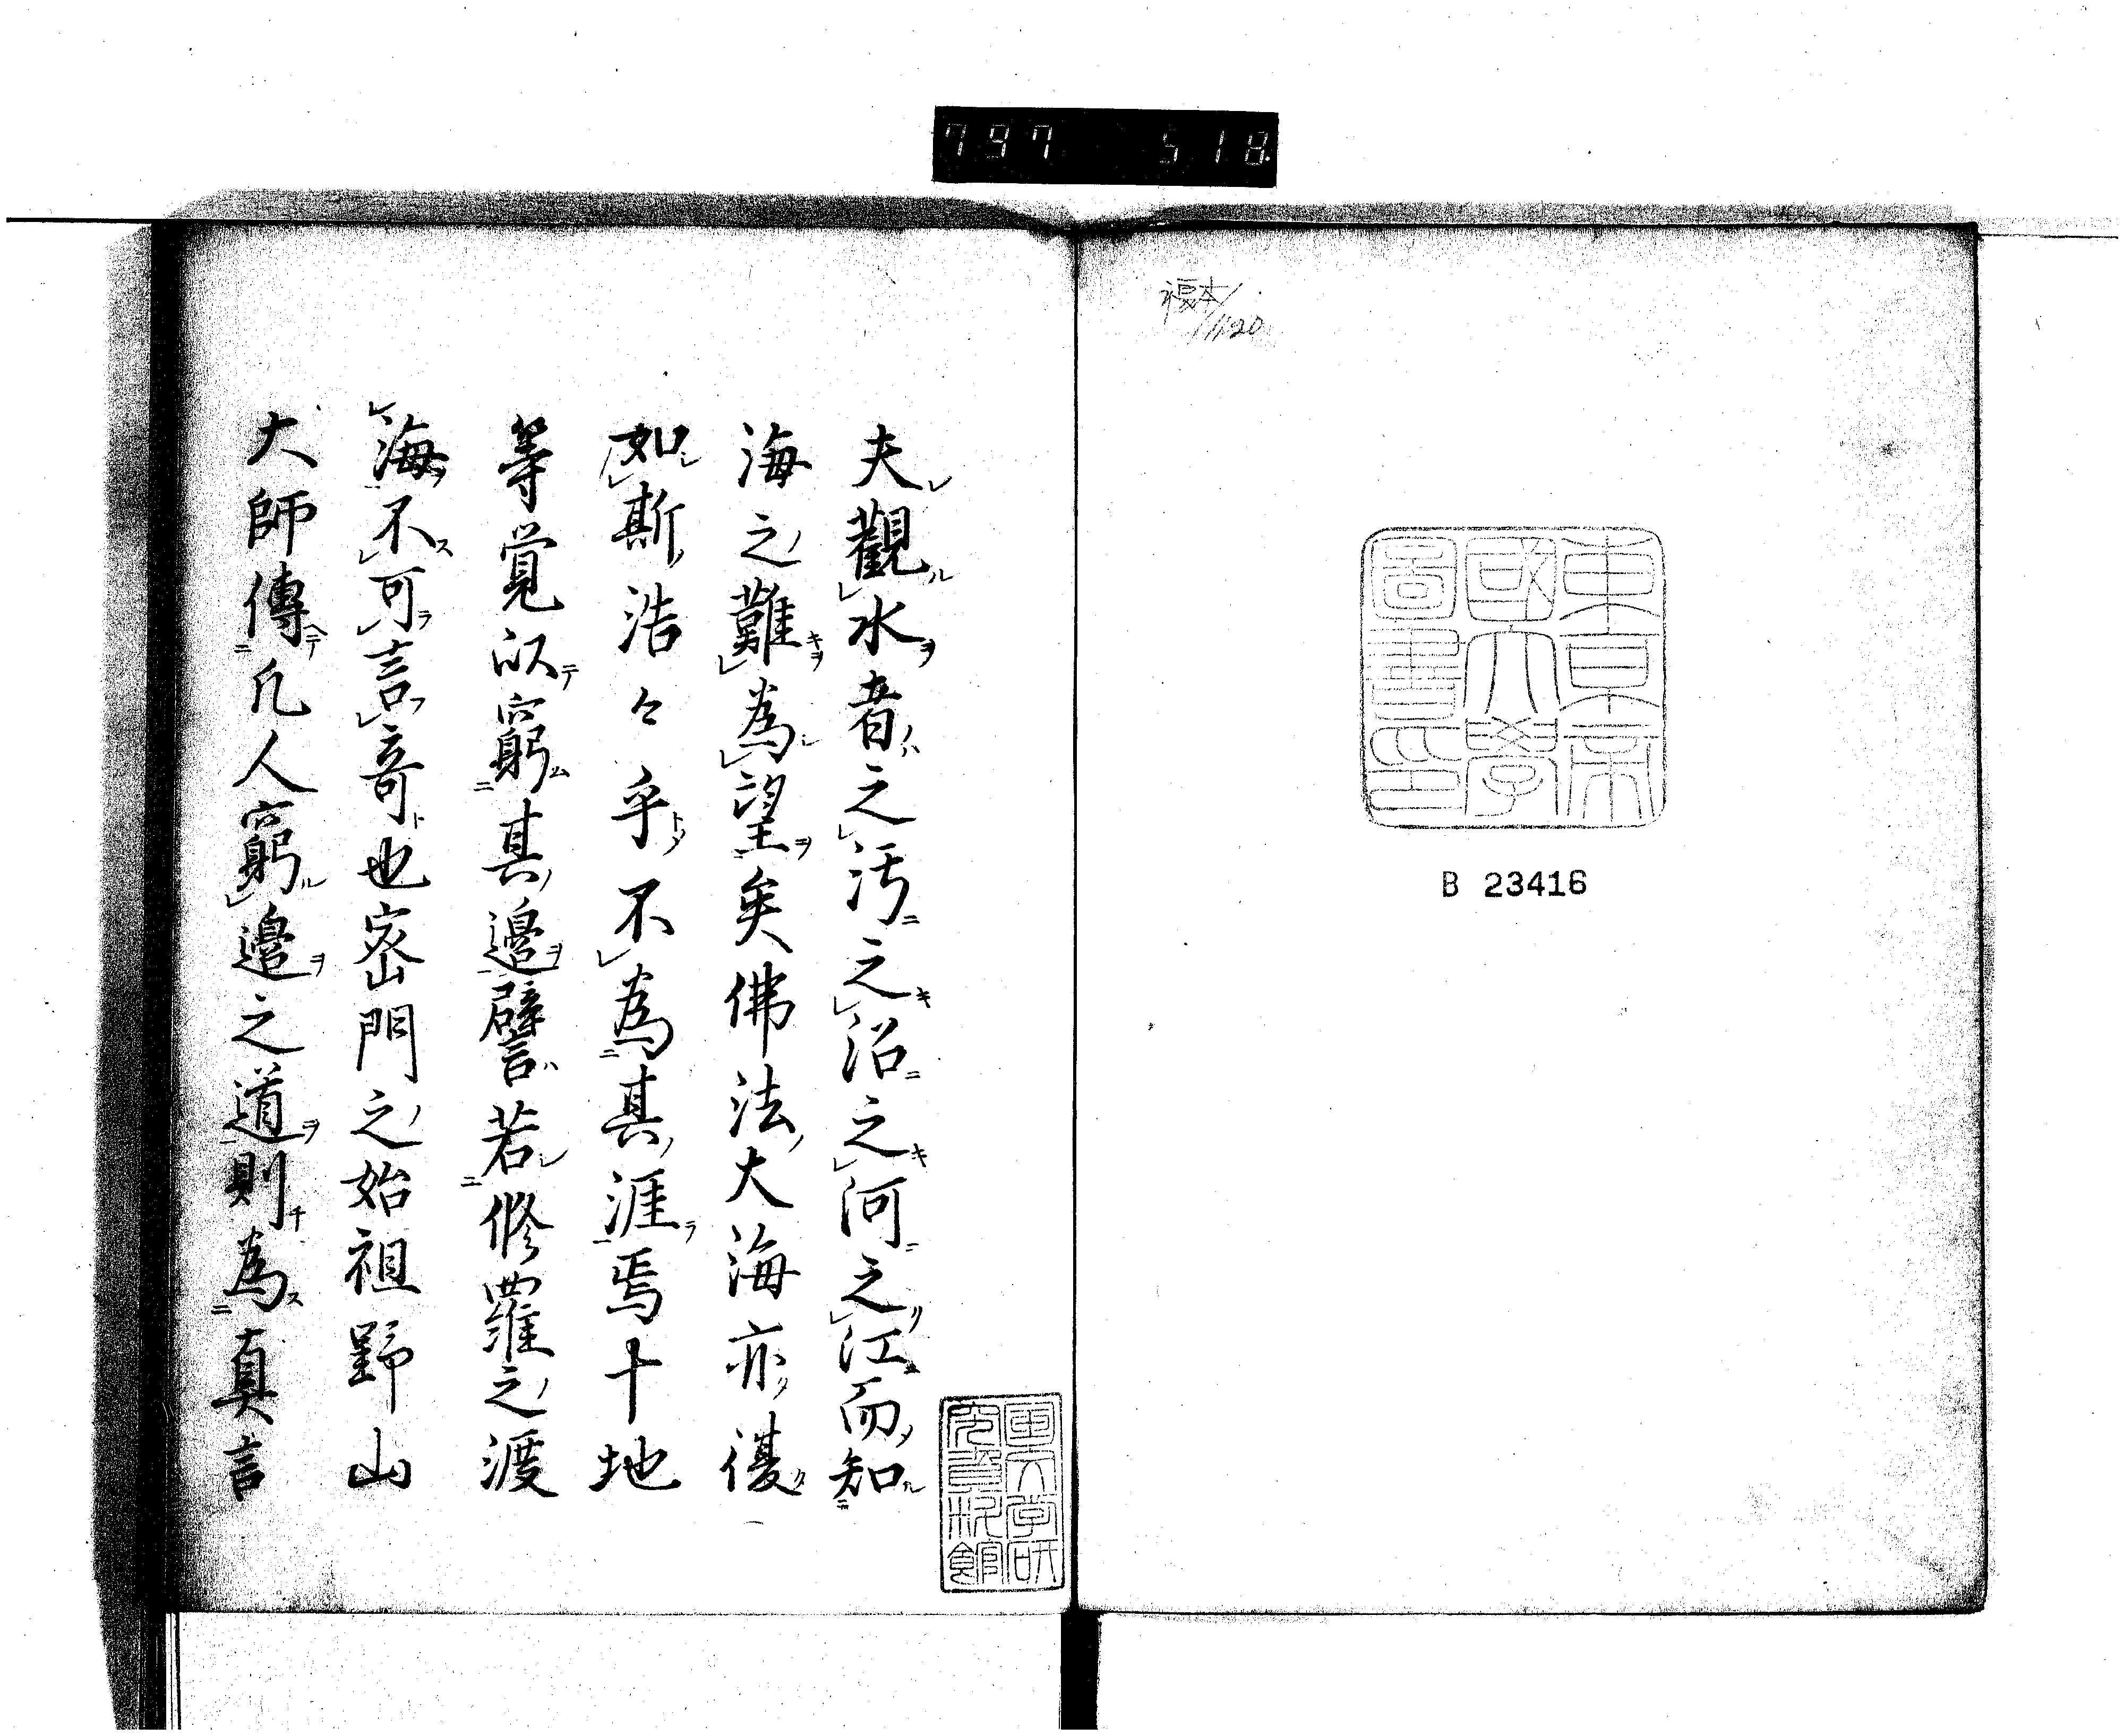 797 518
複本
1120
東京帝
國大學
圖書印
B 23416
夫觀水者之汚之沿之河之江而知
海之難為望矣佛法大海亦復
如斯浩々乎不為其涯焉十地
等覚以窮其邊譬若修羅之渡
海不可言奇也密門之始祖野山
大師傳凡人窮邊之道則為真言